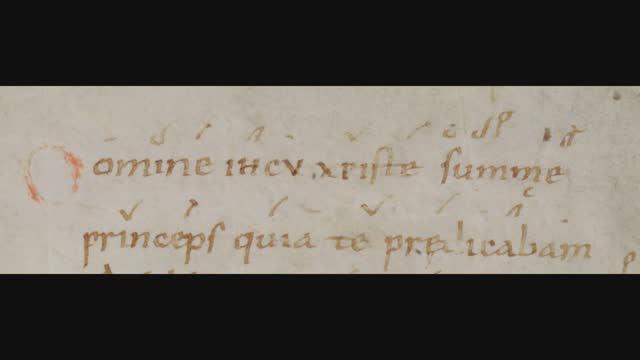 Domine ihcv xriste summe
princeps quia te predicabam